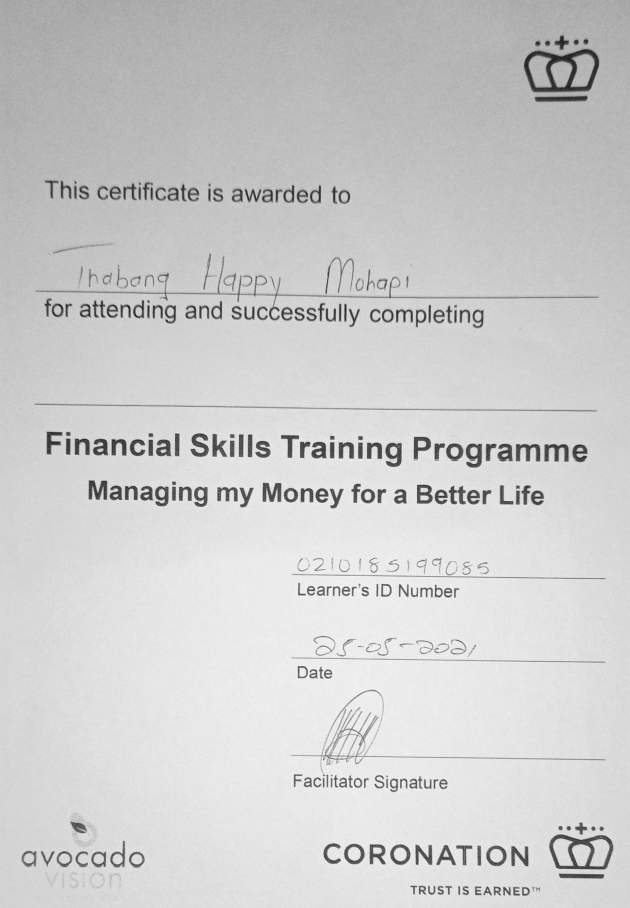 This certificate is awarded to
Thabang Happy Mohapi
for attending and successfully completing
Financial Skills Training Programme
Managing my Money for a Better Life
0210185199085
Learner's ID Number
25-05-2021
Date
Facilitator Signature
avocado
VISION
CORONATION
TRUST IS EARNED™